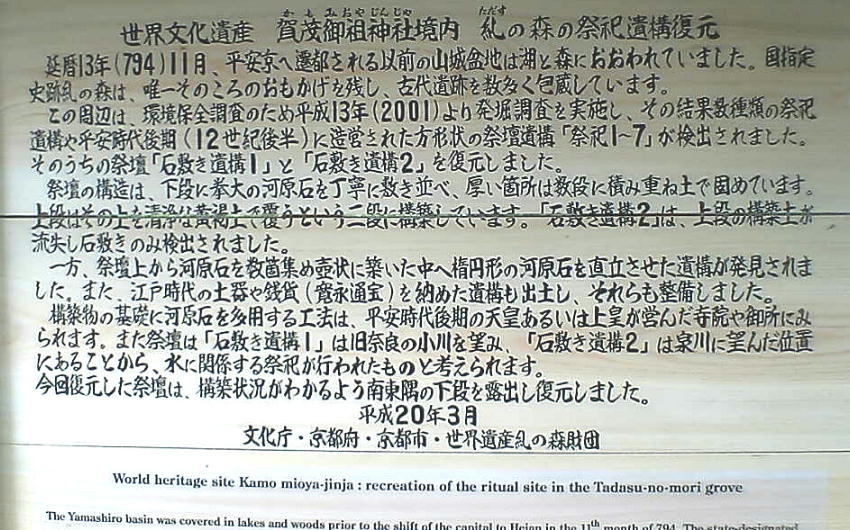 かもみおやじんじゃ ただす
世界文化遺産 賀茂御祖神社境内 糺の森の祭祀遺構復元
延暦13年(794)11月、平安京へ遷都される以前の山城盆地は湖と森におおわれていました。国指定
史跡糺の森は、唯一そのころのおもかげを残し、古代遺跡を数多く包蔵しています。
この周辺は、環境保全調査のため平成13年(2001)より発掘調査を実施し、その結果数種類の祭祀
遺構や平安時代後期(12世紀後半)に造営された方形状の祭壇遺構「祭祀1~7」が検出されました。
そのうちの祭壇「石敷き遺構1」と「石敷き遺構2」を復元しました。
祭壇の構造は、下段に拳大の河原石を丁寧に敷き並べ、厚い箇所は数段に積み重ね土で固めています。
上段はその上を清浄な黄褐土で覆うという二段に構築しています。「石敷き遺構2」は、上段の構築土が
流失し石敷きのみ検出されました。
一方、祭壇上から河原石を数箇集め壺状に築いた中へ楕円形の河原石を直立させた遺構が発見されま
した。また、江戸時代の土器や銭貨(寛永通宝)を納めた遺構も出土し、それらも整備しました。
構築物の基礎に河原石を多用する工法は、平安時代後期の天皇あるいは上皇が営んだ寺院や御所にみ
られます。また祭壇は「石敷き遺構1」は旧奈良の小川を望み、「石敷き遺構2」は泉川に望んだ位置
にあることから、水に関係する祭祀が行われたものと考えられます。
今回復元した祭壇は、構築状況がわかるよう南東隅の下段を露出し復元しました。
平成20年3月
文化庁・京都府・京都市・世界遺産糺の森財団
World heritage site Kamo mioya-jinja : recreation of the ritual site in the Tadasu-no-mori grove
The Yamashiro basin was covered in lakes and woods prior to the shift of the capital to Heian in the 11th month of 794. The state-designated